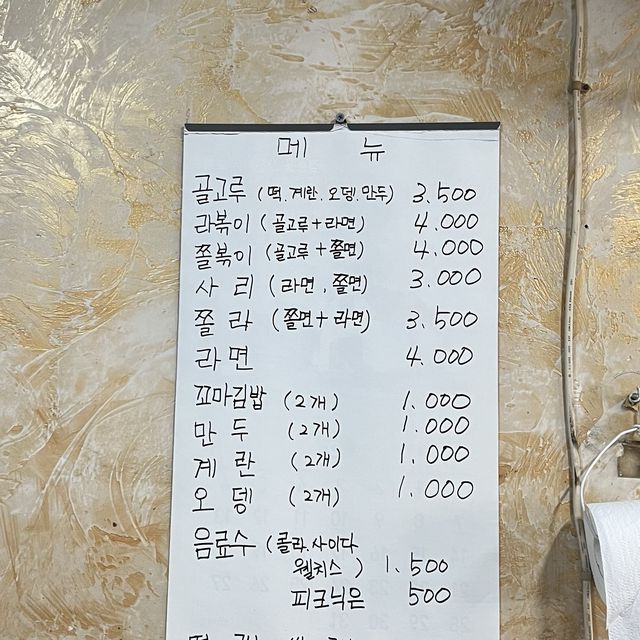 메 뉴
골고루 (떡.계란.오뎅.만두) 3.500
라볶이 (골고루+라면) 4.000
쫄볶이 (골고루+쫄면) 4.000
사 리 (라면, 쫄면) 3.000
쫄 라 (쫄면+라면) 3.500
라면 4.000
꼬마김밥 (2개) 1.000
만 두 (2개) 1.000
계 란 (2개) 1.000
오 뎅 (2개) 1.000
음료수 (콜라.사이다
웰치스 ) 1.500
피크닉은 500